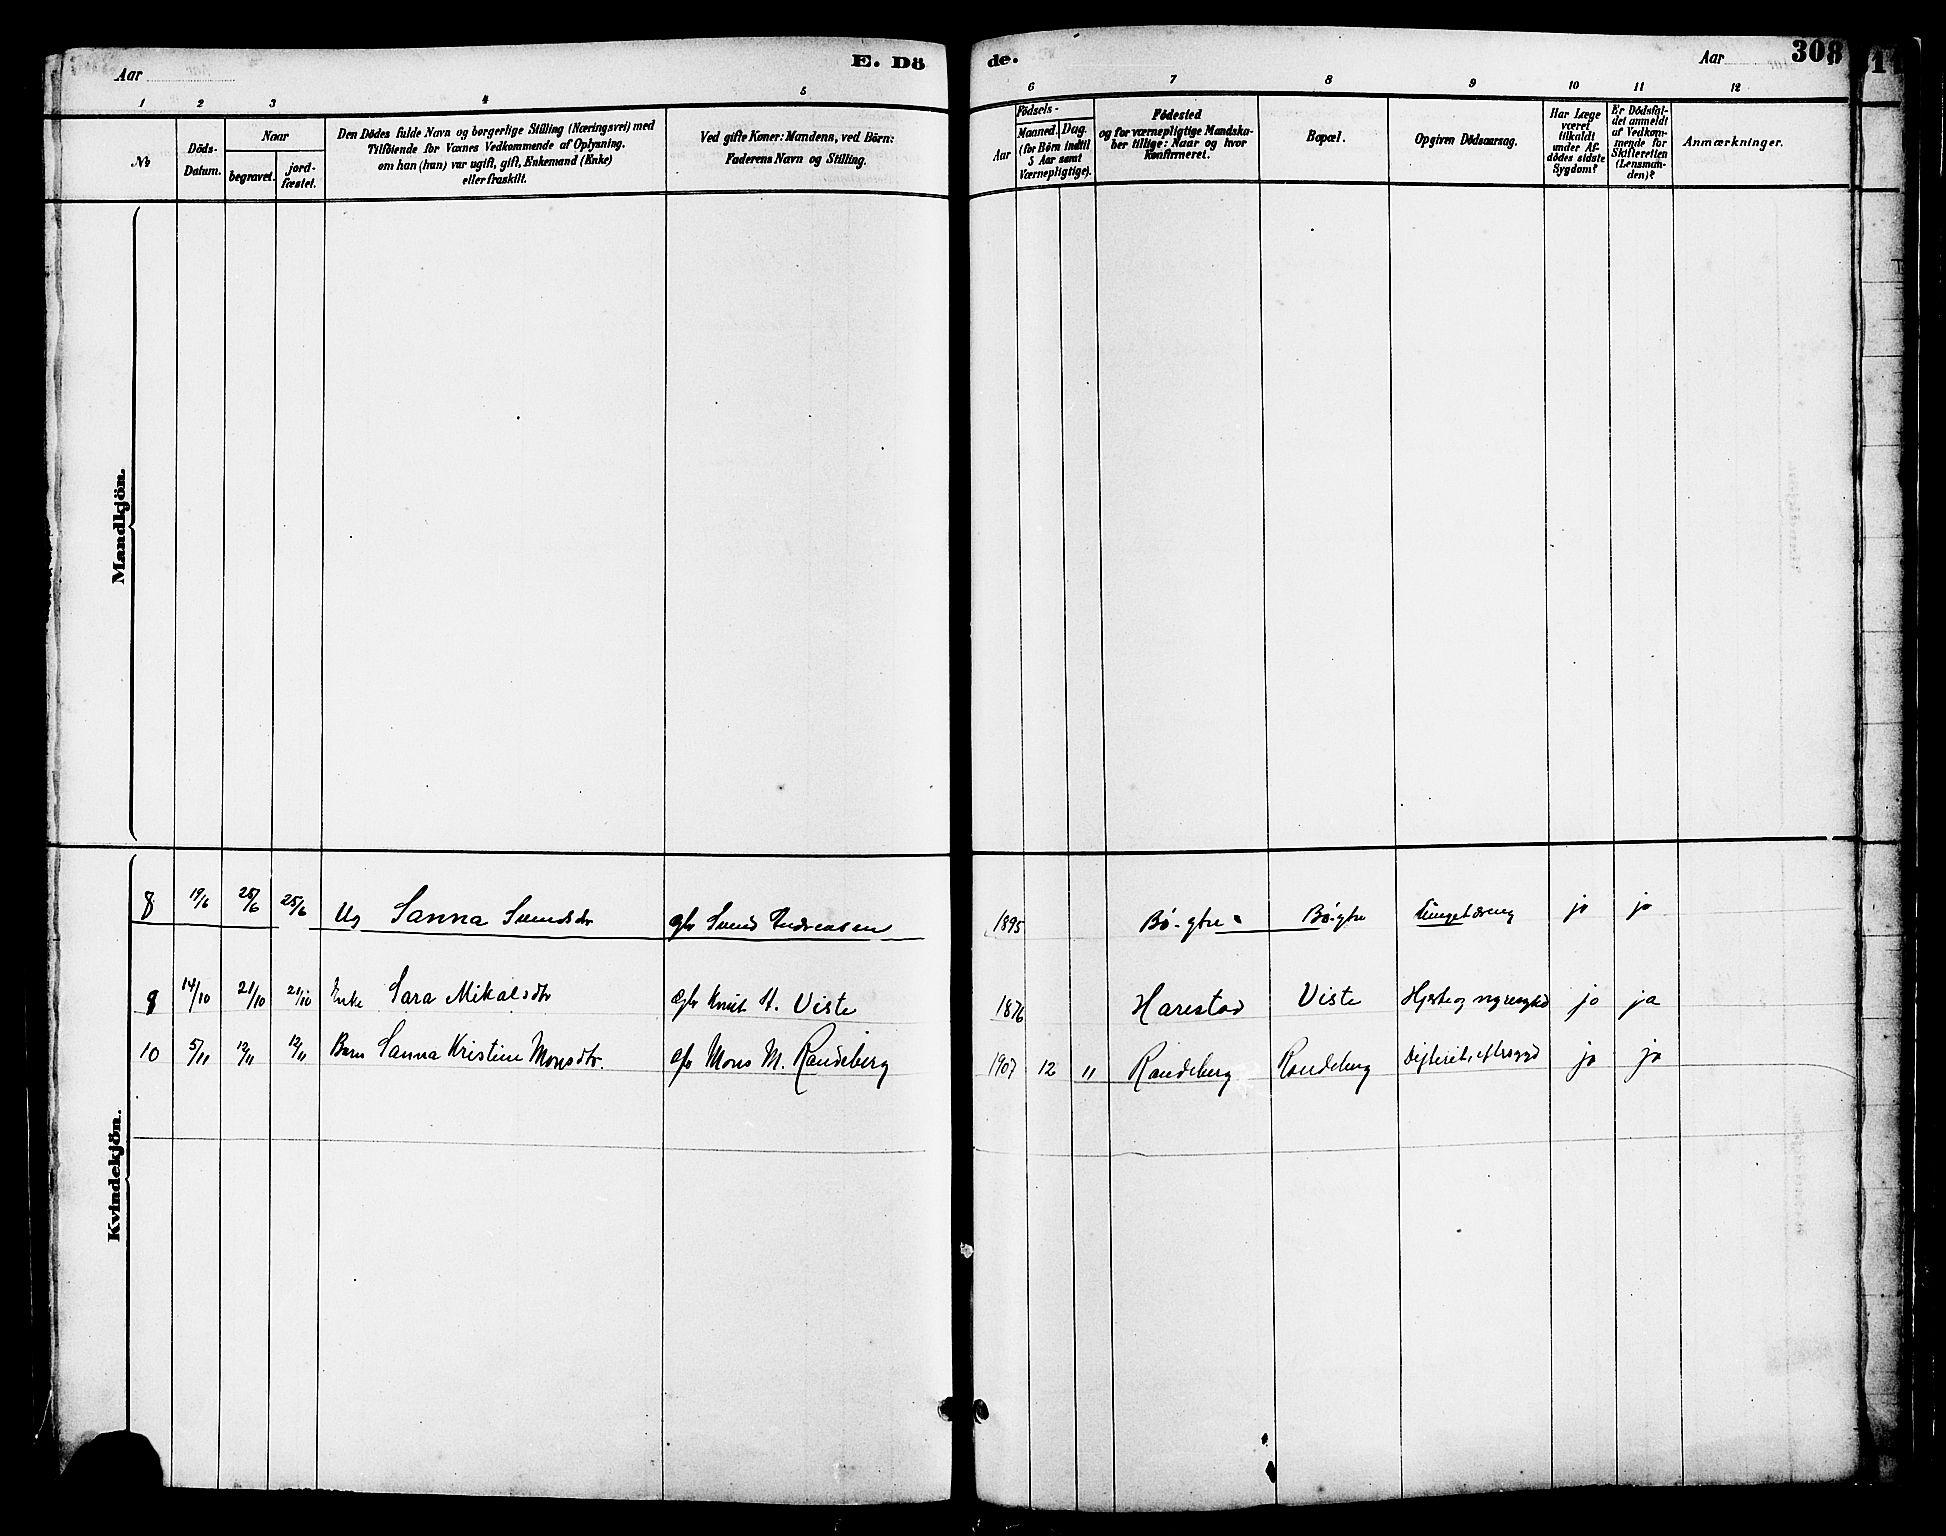 Aar
E. Dö
de.
Aar
308
1 2 3 4 5 6 7 8 9 10 11 12
No
Döds-
Datum.
Naar
begravet.
jord-
fæstet.
Den Dödes fulde Navn og borgerlige Stilling (Næringsvei) med
Tilföiende for Voxnes Vedkommende af Oplysning,
om han (hun) var ugift, gift, Enkemand (Enke)
eller fraskilt.
Ved gifte Koner: Mandens, ved Börn:
Faderens Navn og Stilling.
Aar
Födsels-
Maaned. Dag.
(for Börn indtil
5 Aar samt
Værnepligtige).
Födested
og for værnepligtige Mandska-
ber tillige: Naar og hvor
Konfirmeret.
Bopæl.
Opgiven Dödsaarsag.
Har Læge
været
tilkaldt
under Af-
dödes sidste
Sygdom?
Er Dödsfal-
det anmeldt
af Vedkom-
mende for
Skifteretten
(Lensman-
den)?
Anmærkninger.
Mandkjön.
Kvindekjön.
8 19/6 25/6 25/6 Ug Sanna Svendsdtr Svend Andreasen 1895 Bö-gtre Bö-gtre jo jo
9 14/10 21/10 21/10 Enke Sara Mikalsdtr Knut H. Viste 1876 Harestad Viste jo ja
10 5/11 12/11 12/11 Barn Sanna Kristine Monsdtr. Mons M. Randeberg 1907 12 " Randeberg Randeberg jo jo